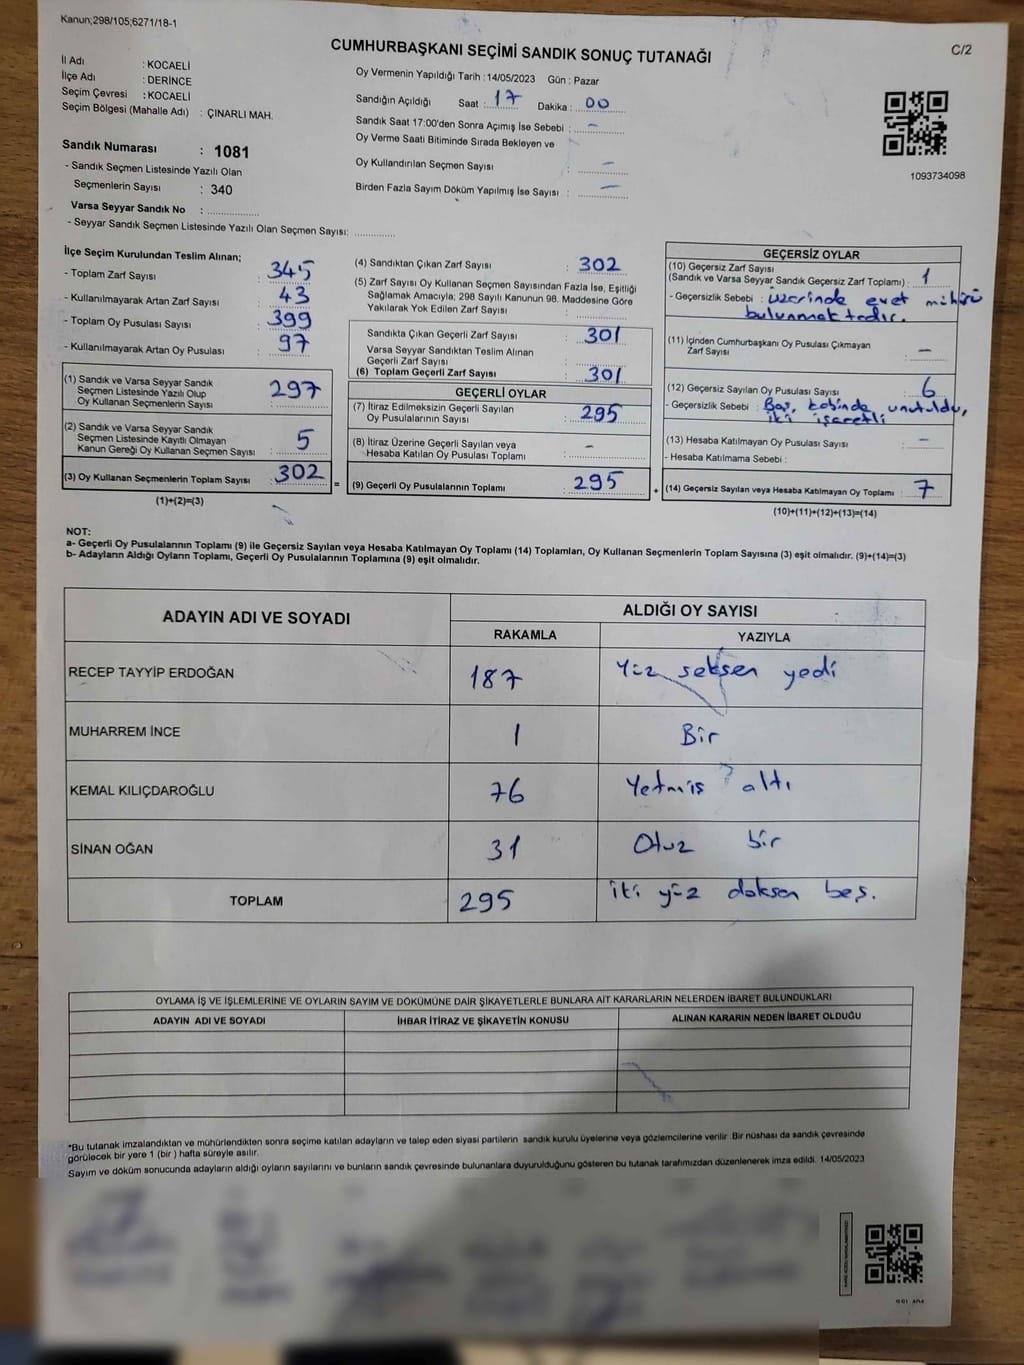 Kanun;298/105;6271/18-1
CUMHURBAŞKANI SEÇİMİ SANDIK SONUÇ TUTANAĞI
C/2
İl Adı : KOCAELİ
İlçe Adı : DERİNCE
Seçim Çevresi : KOCAELİ
Seçim Bölgesi (Mahalle Adı) : ÇINARLI MAH.
Sandık Numarası : 1081
- Sandık Seçmen Listesinde Yazılı Olan
Seçmenlerin Sayısı : 340
Varsa Seyyar Sandık No :
- Seyyar Sandık Seçmen Listesinde Yazılı Olan Seçmen Sayısı:
Oy Vermenin Yapıldığı Tarih : 14/05/2023 Gün : Pazar
Sandığın Açıldığı Saat : 17 Dakika : 00
Sandık Saat 17:00'den Sonra Açımış İse Sebebi : -
Oy Verme Saati Bitiminde Sırada Bekleyen ve
Oy Kullandırılan Seçmen Sayısı : -
Birden Fazla Sayım Döküm Yapılmış İse Sayısı : -
1093734098
İlçe Seçim Kurulundan Teslim Alınan;
- Toplam Zarf Sayısı : 345
- Kullanılmayarak Artan Zarf Sayısı : 43
- Toplam Oy Pusulası Sayısı : 399
- Kullanılmayarak Artan Oy Pusulası : 97
(1) Sandık ve Varsa Seyyar Sandık
Seçmen Listesinde Yazılı Olup
Oy Kullanan Seçmenlerin Sayısı : 297
(2) Sandık ve Varsa Seyyar Sandık
Seçmen Listesinde Kayıtlı Olmayan
Kanun Gereği Oy Kullanan Seçmen Sayısı : 5
(3) Oy Kullanan Seçmenlerin Toplam Sayısı : 302
(1)+(2)=(3)
(4) Sandıktan Çıkan Zarf Sayısı : 302
(5) Zarf Sayısı Oy Kullanan Seçmen Sayısından Fazla İse, Eşitliği
Sağlamak Amacıyla; 298 Sayılı Kanunun 98. Maddesine Göre
Yakılarak Yok Edilen Zarf Sayısı :
Sandıkta Çıkan Geçerli Zarf Sayısı : 301
Varsa Seyyar Sandıktan Teslim Alınan
Geçerli Zarf Sayısı :
(6) Toplam Geçerli Zarf Sayısı : 301
GEÇERLİ OYLAR
(7) İtiraz Edilmeksizin Geçerli Sayılan
Oy Pusulalarının Sayısı : 295
(8) İtiraz Üzerine Geçerli Sayılan veya
Hesaba Katılan Oy Pusulası Toplamı : -
= (9) Geçerli Oy Pusulalarının Toplamı : 295
GEÇERSİZ OYLAR
(10) Geçersiz Zarf Sayısı
(Sandık ve Varsa Seyyar Sandık Geçersiz Zarf Toplamı) : 1
- Geçersizlik Sebebi : Üzerinde evet mührü
bulunmaktadır.
(11) İçinden Cumhurbaşkanı Oy Pusulası Çıkmayan
Zarf Sayısı : -
(12) Geçersiz Sayılan Oy Pusulası Sayısı : 6
- Geçersizlik Sebebi : Boş, kabinde unutuldu,
iki işaretli
(13) Hesaba Katılmayan Oy Pusulası Sayısı : -
- Hesaba Katılmama Sebebi :
+ (14) Geçersiz Sayılan veya Hesaba Katılmayan Oy Toplamı : 7
(10)+(11)+(12)+(13)=(14)
NOT:
a- Geçerli Oy Pusulalarının Toplamı (9) ile Geçersiz Sayılan veya Hesaba Katılmayan Oy Toplamı (14) Toplamları, Oy Kullanan Seçmenlerin Toplam Sayısına (3) eşit olmalıdır. (9)+(14)=(3)
b- Adayların Aldığı Oyların Toplamı, Geçerli Oy Pusulalarının Toplamına (9) eşit olmalıdır.
ADAYIN ADI VE SOYADI ALDIĞI OY SAYISI
RAKAMLA YAZIYLA
RECEP TAYYİP ERDOĞAN 187 Yüz seksen yedi
MUHARREM İNCE 1 Bir
KEMAL KILIÇDAROĞLU 76 Yetmiş altı
SİNAN OĞAN 31 Otuz bir
TOPLAM 295 iki yüz doksan beş.
OYLAMA İŞ VE İŞLEMLERİNE VE OYLARIN SAYIM VE DÖKÜMÜNE DAİR ŞİKAYETLERLE BUNLARA AİT KARARLARIN NELERDEN İBARET BULUNDUKLARI
ADAYIN ADI VE SOYADI İHBAR İTİRAZ VE ŞİKAYETİN KONUSU ALINAN KARARIN NEDEN İBARET OLDUĞU
*Bu tutanak imzalandıktan ve mühürlendikten sonra seçime katılan adayların ve talep eden siyasi partilerin sandık kurulu üyelerine veya gözlemcilerine verilir. Bir nüshası da sandık çevresinde
görülecek bir yere 1 (bir) hafta süreyle asılır.
Sayım ve döküm sonucunda adayların aldığı oyların sayılarını ve bunların sandık çevresinde bulunanlara duyurulduğunu gösteren bu tutanak tarafımızdan düzenlenerek imza edildi. 14/05/2023